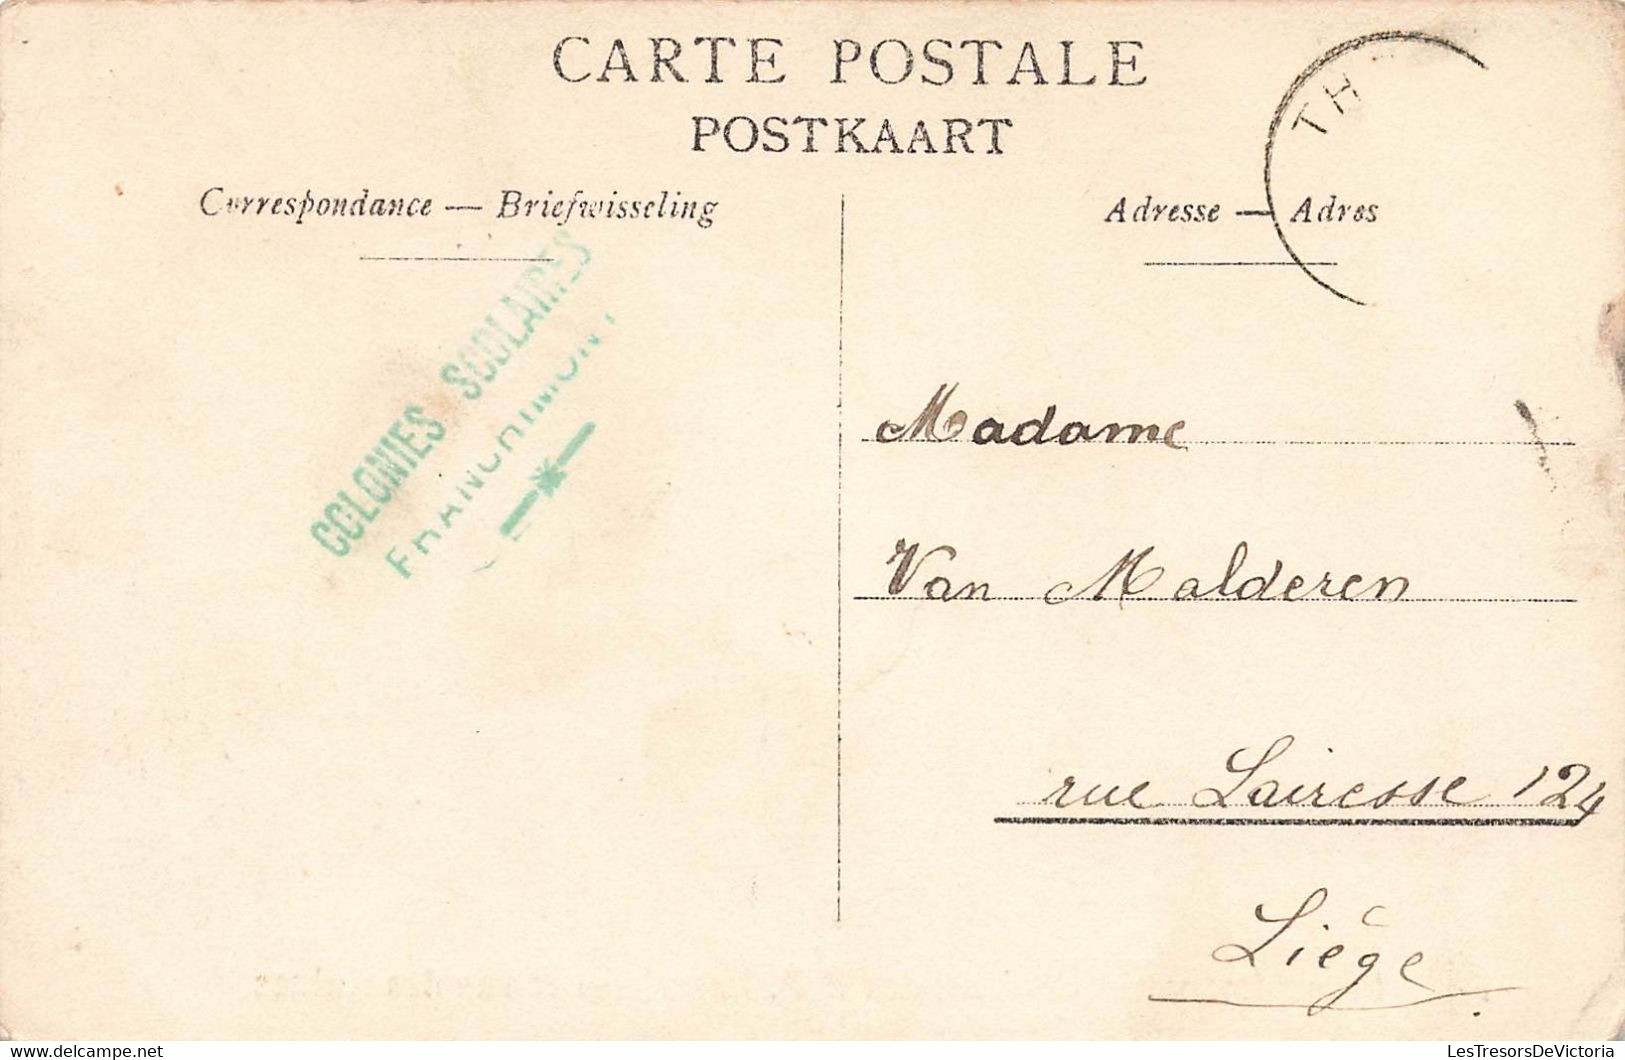 CARTE POSTALE
POSTKAART
Correspondance — Briefwisseling
Adresse — Adres
TH
COLONIES SCOLAIRES
FRANCHIMONT
Madame
Van Malderen
rue Lairesse 124
Liége
LesTresorsDeVictoria